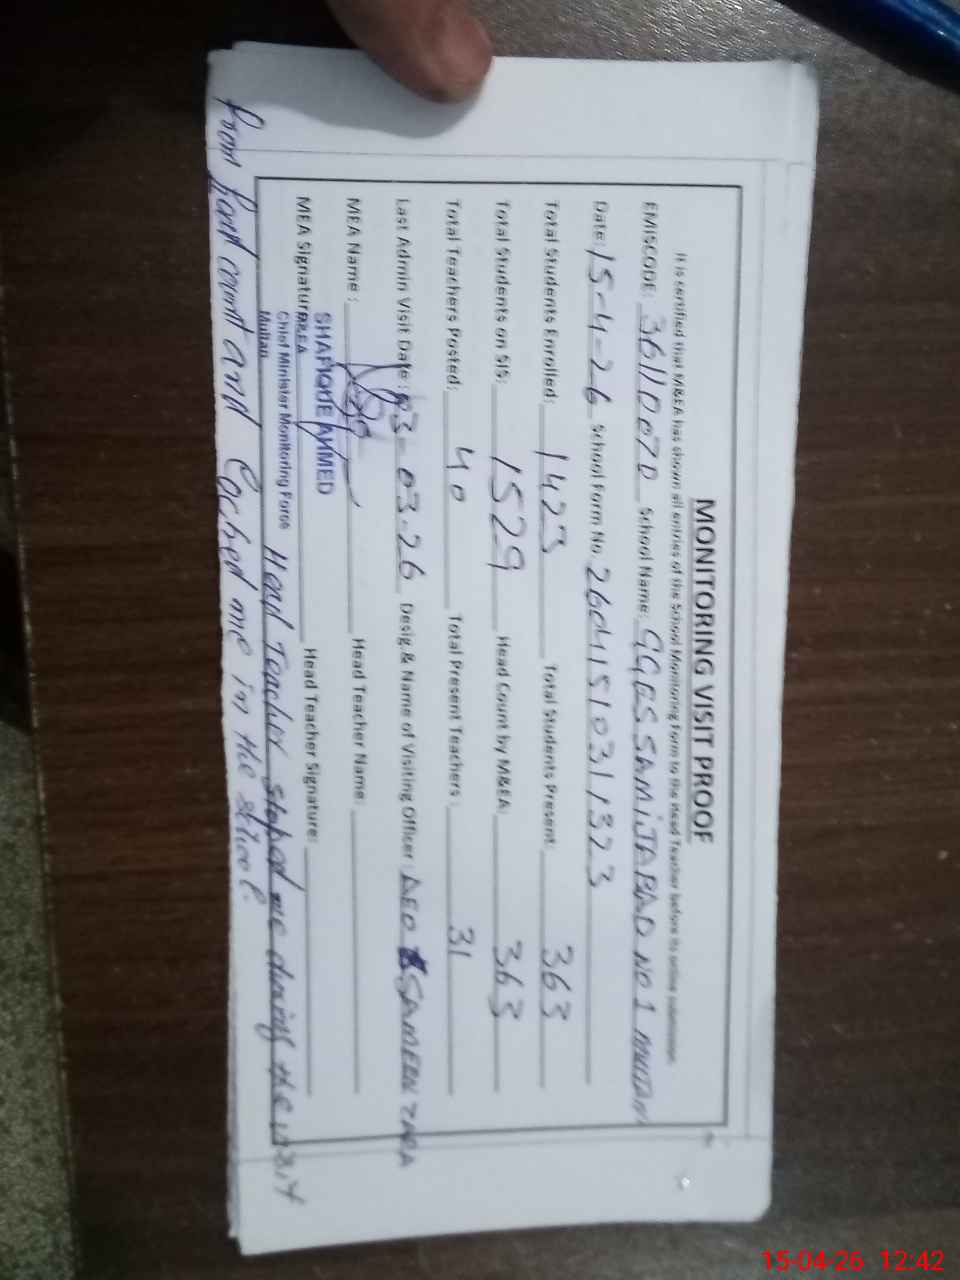 MONITORING VISIT PROOF
It is certified that M&EA has shown all entries of the School Monitoring Form to the Head Teacher before its online submission.
EMISCODE: 36110070 School Name: GGES SAMIJABAD NO 1 MULTAN
Date: 15-4-26 School Form No. 2604151031323
Total Students Enrolled: 1423 Total Students Present: 363
Total Students on SIS: 1529 Head Count by M&EA: 363
Total Teachers Posted: 40 Total Present Teachers: 31
Last Admin Visit Date: 03-03-26 Desig & Name of Visiting Officer: AEO SAMEEN ZARA
MEA Name: Head Teacher Name:
MEA Signature: Head Teacher Signature:
SHAFIQUE AHMED
MEA
Chief Minister Monitoring Force
Multan
Head Teacher stoped me during the visit
from head count and Locked me in the school.
15-04-26 12:42